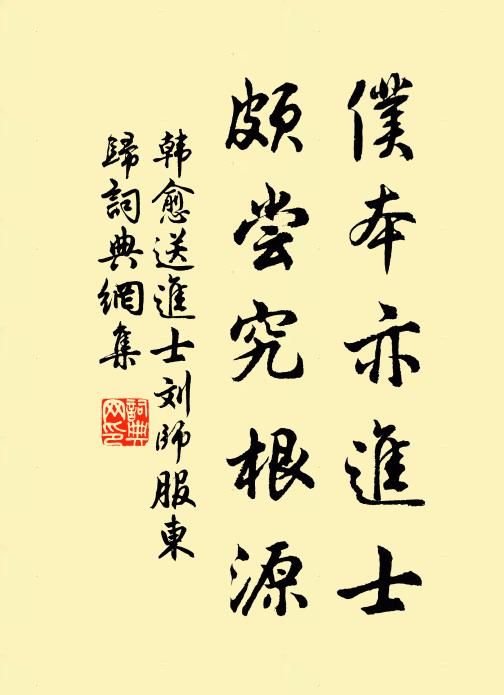 僕本亦進士
頗尝究根源
韩愈送進士刘師服東
歸詞典網集
詞典
网印